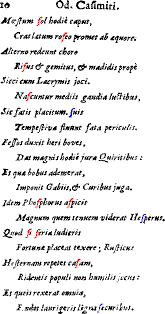 10 Od. Casimiri.
Mœstum sol hodie caput,
Cras latum roseo promet ab æquore.
Alterno redeunt choro
Risus & gemitus, & madidis prope
Sicci cum Lacrymis joci.
Nascuntur mediis gaudia luctibus,
Sic fatis placitum. suis
Tempestiva fluunt fata periculis.
Fessos duxit heri boves,
Dat magnis hodie jura Quiritibus:
Et quæ bobus ademerat,
Imponit Gabiis, & Curibus juga.
Idem Phosphorus aspicit
Magnum quem tenuem viderat Hesperus.
Quod si seria ludicris
Fortunæ placeat texere; Rusticus
Hesternam repetet casam,
Ridentis populi non humilis jocus:
Et queis rexerat omnia,
Findet laurigeris ligna securibus.